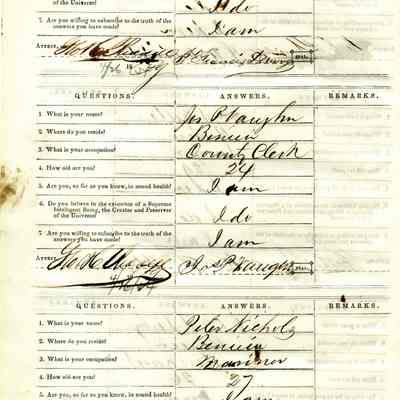 the Universe?
I do
7. Are you willing to subscribe to the truth of the
answers you have made?
I am
Attest,
QUESTIONS. ANSWERS. REMARKS.
1. What is your name? Jos P Vaughn
2. Where do you reside? Benicia
3. What is your occupation? County Clerk
4. How old are you? 24
5. Are you, so far as you know, in sound health? I am
6. Do you believe in the existence of a Supreme
Intelligent Being, the Creator and Preserver
of the Universe? I do
7. Are you willing to subscribe to the truth of the
answers you have made? I am
Attest, Jos P Vaughn
QUESTIONS. ANSWERS. REMARKS.
1. What is your name? Peter Nichols
2. Where do you reside? Benicia
3. What is your occupation? Mariner
4. How old are you? 27
5. Are you, so far as you know, in sound health? I am